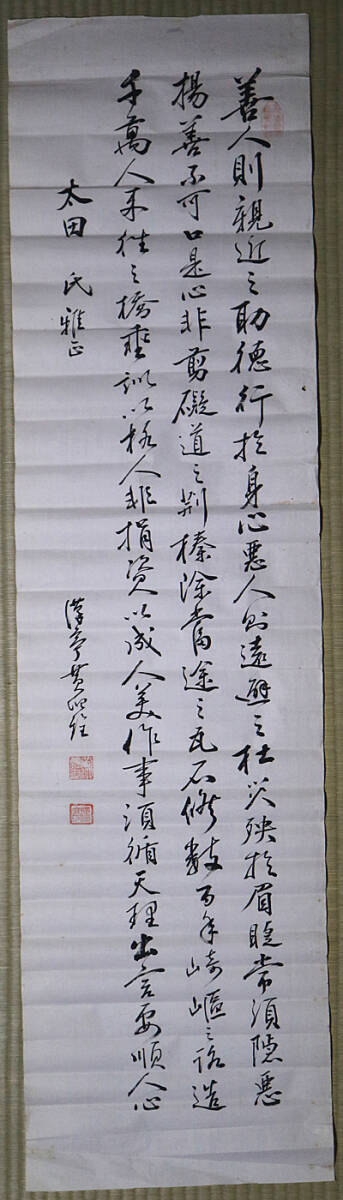 善人則親近之助德行於身心惡人則遠避之杜災殃於眉睫常須隱惡
揚善不可口是心非剪礙道之荊榛除當途之瓦石修數百年崎嶇之路造
千萬人來往之橋垂訓以格人非捐資以成人美作事須循天理出言要順人心
太田氏雅正
漢亭黃